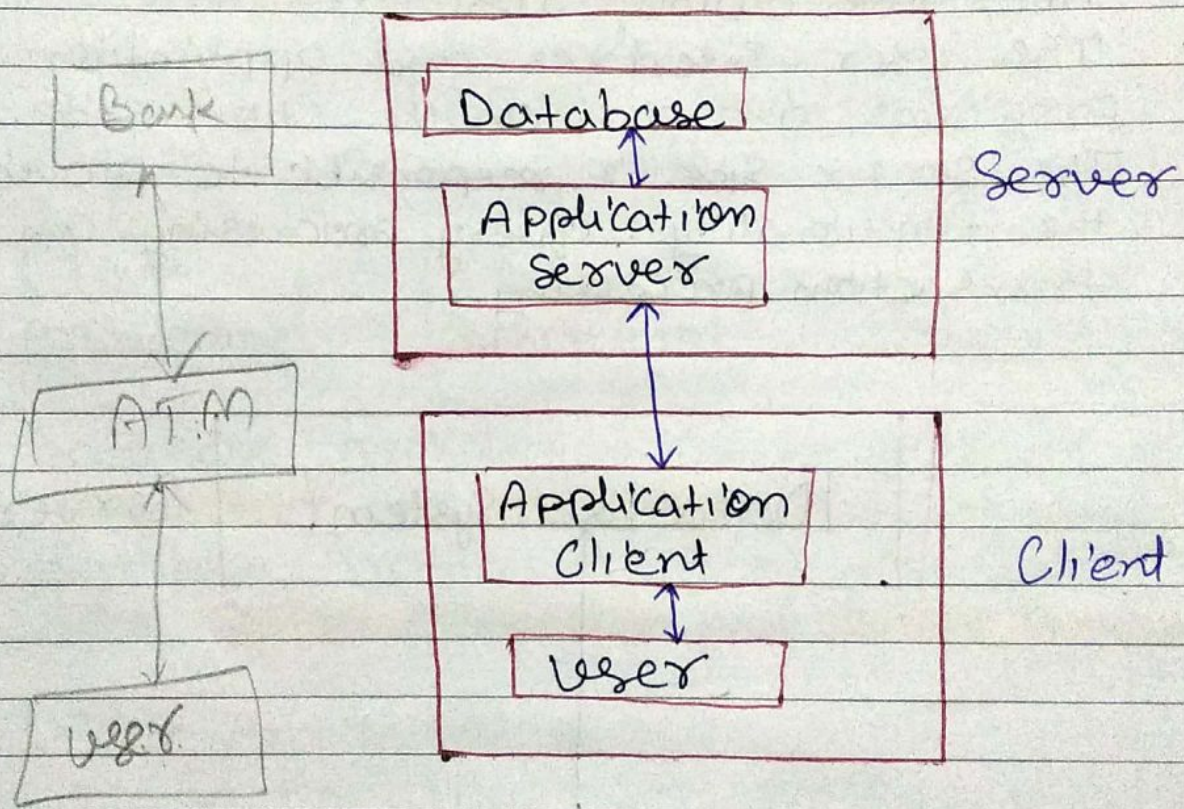 Bank
ATM
user
Database
Application
Server
Application
Client
user
Server
Client